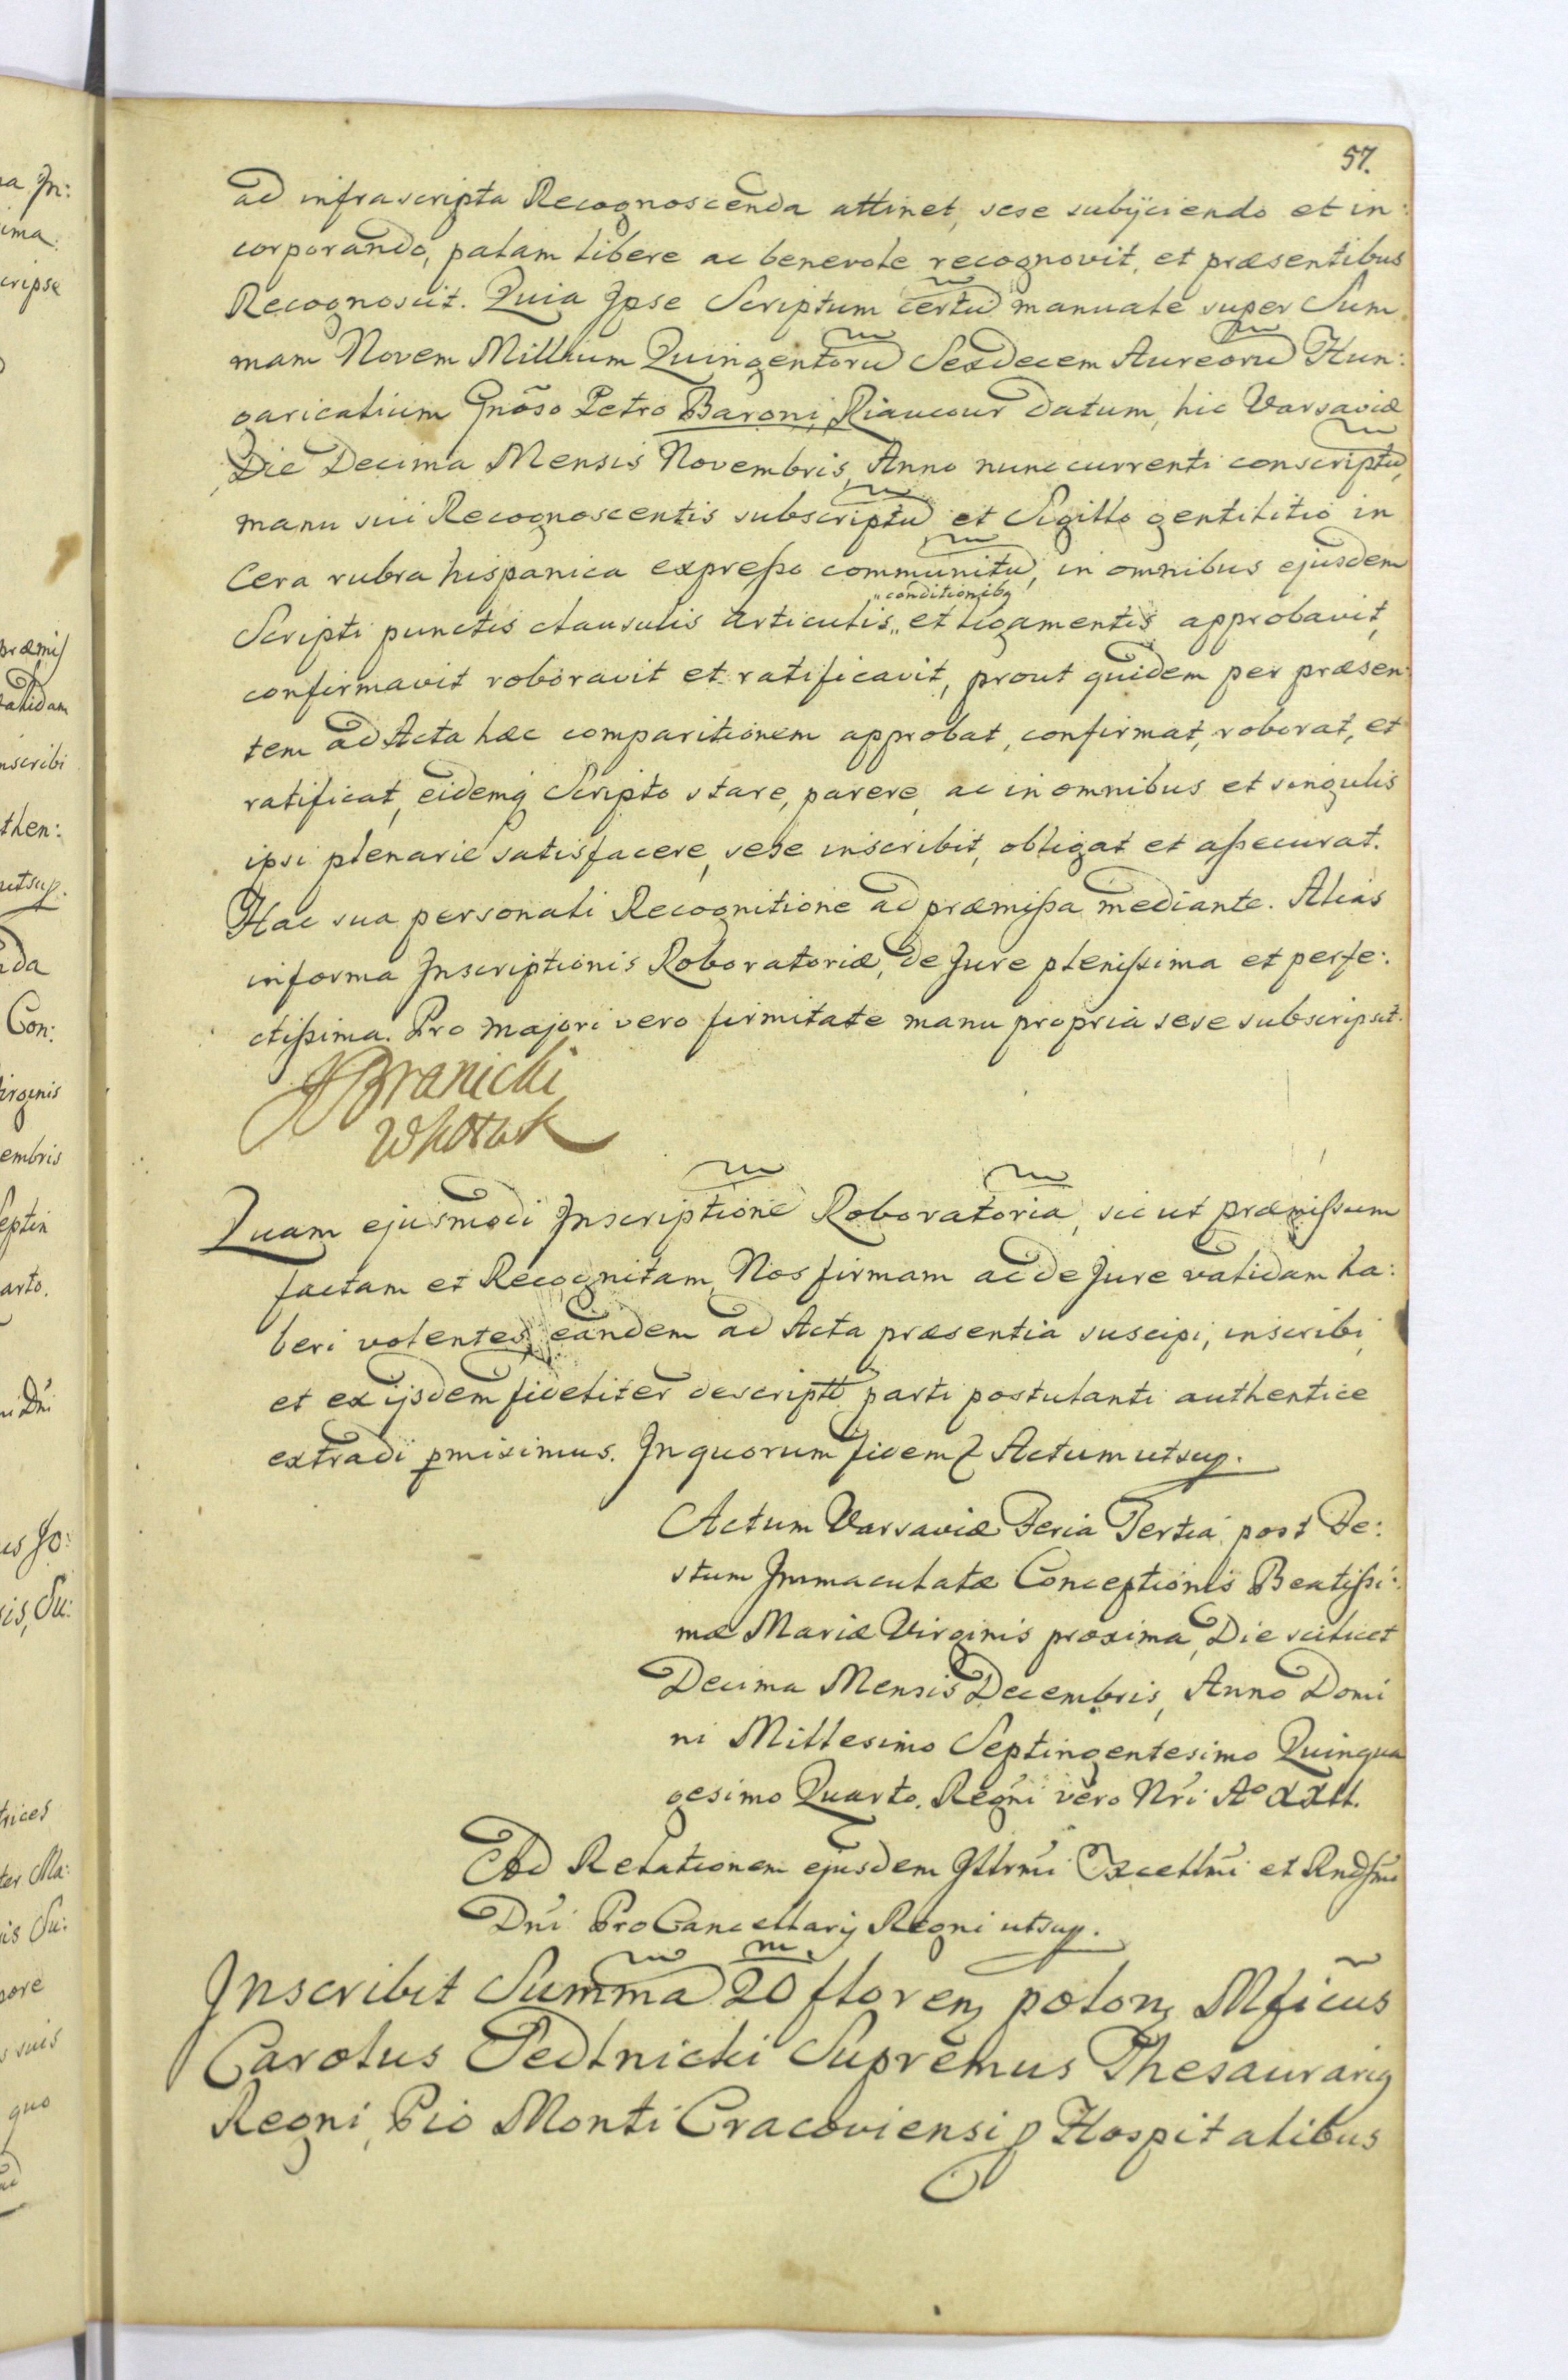 57.
ad infrascripta Recognoscenda attinet, sese subijciendo et in:
corporando, palam libere ac benevole recognovit, et præsentibus
Recognoscit. Quia Ipse Scriptum certũ manuale super Sum
mam Novem Millium Quingentorũ Sexdecem Aureorũ Hun:
garicalium Gnõso Petro Baroni Riaucour datum, hic Varsaviæ
Die Decima Mensis Novembris, Anno nunc currenti conscriptũ,
manu sui Recognoscentis subscriptũ et Sigillo gentilitio in
Cera rubra hispanica expreßo communitũ, in omnibus ejusdem
"conditionibq
Scripti punctis clausulis articulis " et ligamentis approbavit,
confirmavit roboravit et ratificavit, prout quidem per præsen:
tem ad Acta hæc comparitionem approbat, confirmat, roborat, et
ratificat, eidemq Scripto stare, parere, ac in omnibus et singulis
ipsi plenarie satisfacere, sese inscribit, obligat et aßecurat.
Hac sua personali Recognitione ad præmißa mediante. Alias
in forma Inscriptionis Roboratoriæ, de Jure plenißima et perfe:
ctißima. Pro majori vero firmitate manu propria sese subscripsit.
Branicki
Quam ejusmodi Inscriptionẽ Roboratoriã, sicut præmißum
factam et Recognitam, Nos firmam ac de Jure validam ha:
beri volentes, eandem ad Acta præsentia suscipi, inscribi,
et ex ijsdem fideliter descriptã parti postulanti authentice
extradi pmisimus. In quorum fidem Actum utsup.
Actum Varsaviæ Feria Tertia post Fe:
stum Immaculatæ Conceptionis Beatißi:
mæ Mariæ Virginis proxima, Die scilicet
Decima Mensis Decembris, Anno Domi
ni Millesimo Septingentesimo Quinqua
gesimo Quarto. Regni vero Nri Aº XXII.
Ad Relationem ejusdem Illrmi Excellmi et Rndsmi
Dni ProCancellarij Regni utsup.
Inscribit Summã 20 m floren polon Mficus
Carolus Sedlnicki Supremus Thesaurarig
Regni, Pio Monti Cracoviensi p Hospitalibus